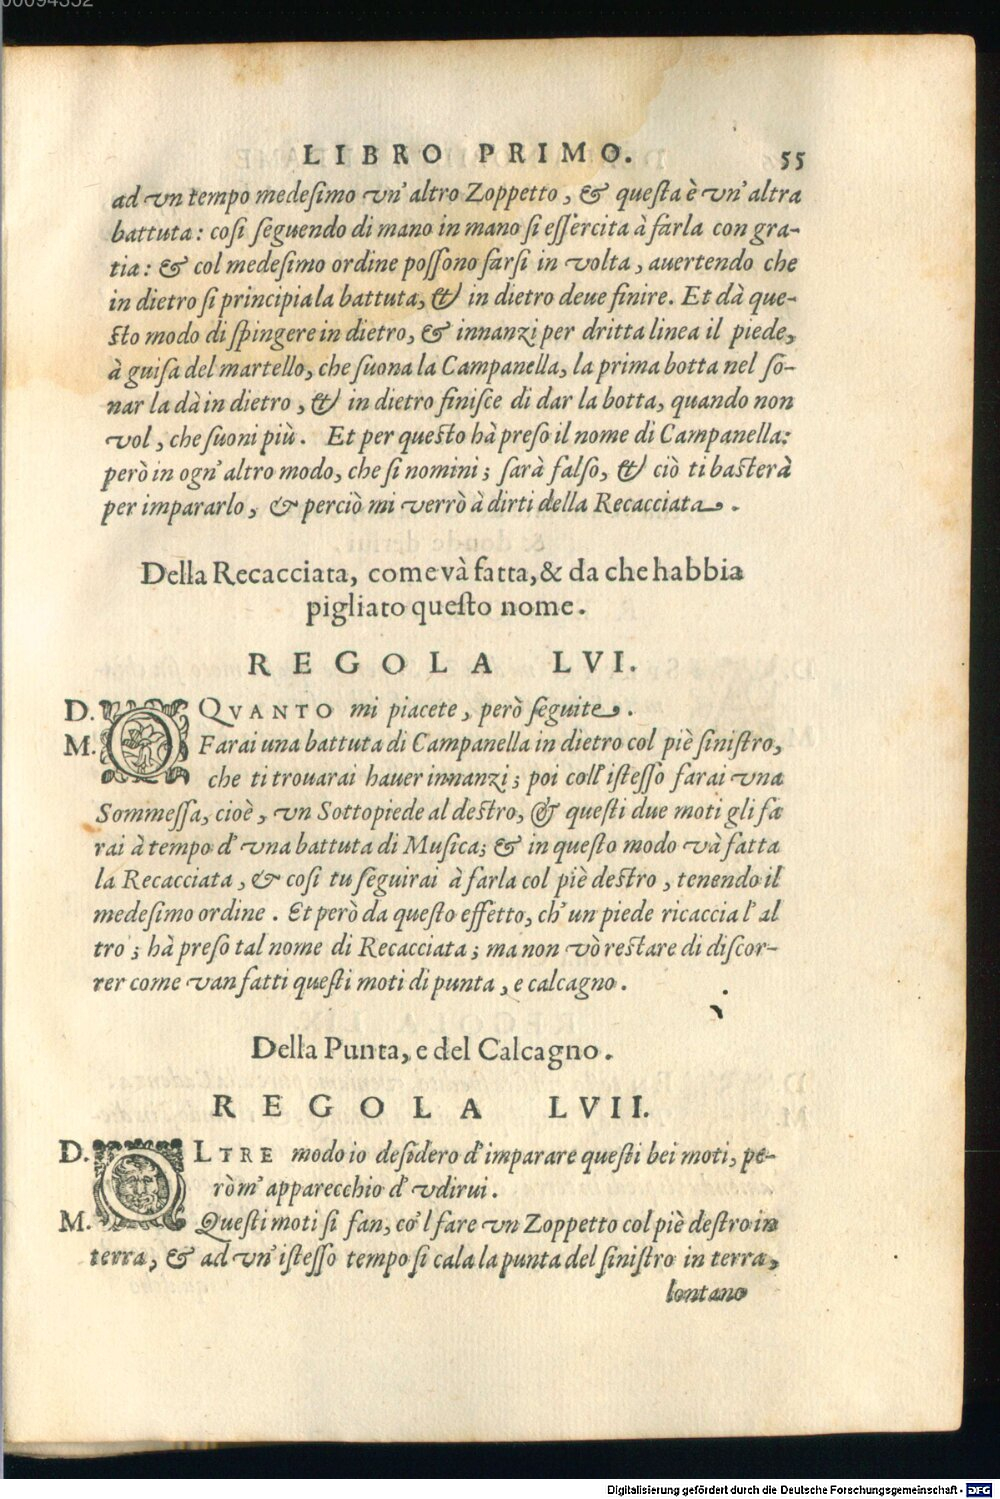 00094352
LIBRO PRIMO. 55
ad vn tempo medesimo vn' altro Zoppetto, & questa è vn' altra
battuta: cosi seguendo di mano in mano si essercita à farla con gra-
tia: & col medesimo ordine possono farsi in volta, auertendo che
in dietro si principia la battuta, & in dietro deue finire. Et dà que-
sto modo di spingere in dietro, & innanzi per dritta linea il piede,
à guisa del martello, che suona la Campanella, la prima botta nel so-
nar la dà in dietro, & in dietro finisce di dar la botta, quando non
vol, che suoni più. Et per questo hà preso il nome di Campanella:
però in ogn' altro modo, che si nomini; sarà falso, & ciò ti basterà
per impararlo, & perciò mi verrò à dirti della Recacciata.
Della Recacciata, come và fatta, & da che habbia
pigliato questo nome.
REGOLA LVI.
D. O QVANTO mi piacete, però seguite.
M. Farai una battuta di Campanella in dietro col piè sinistro,
che ti trouarai hauer innanzi; poi coll' istesso farai vna
Sommessa, cioè, vn Sottopiede al destro, & questi due moti gli fa
rai à tempo d' vna battuta di Musica; & in questo modo và fatta
la Recacciata, & cosi tu seguirai à farla col piè destro, tenendo il
medesimo ordine. Et però da questo effetto, ch' un piede ricaccia l' al
tro; hà preso tal nome di Recacciata; ma non vò restare di discor-
rer come van fatti questi moti di punta, e calcagno.
Della Punta, e del Calcagno.
REGOLA LVII.
D. OLTRE modo io desidero d' imparare questi bei moti, pe-
rò m' apparecchio d' vdirui.
M. Questi moti si fan, co' l fare vn Zoppetto col piè destro in
terra, & ad vn' istesso tempo si cala la punta del sinistro in terra,
lontano
Digitalisierung gefördert durch die Deutsche Forschungsgemeinschaft - DFG